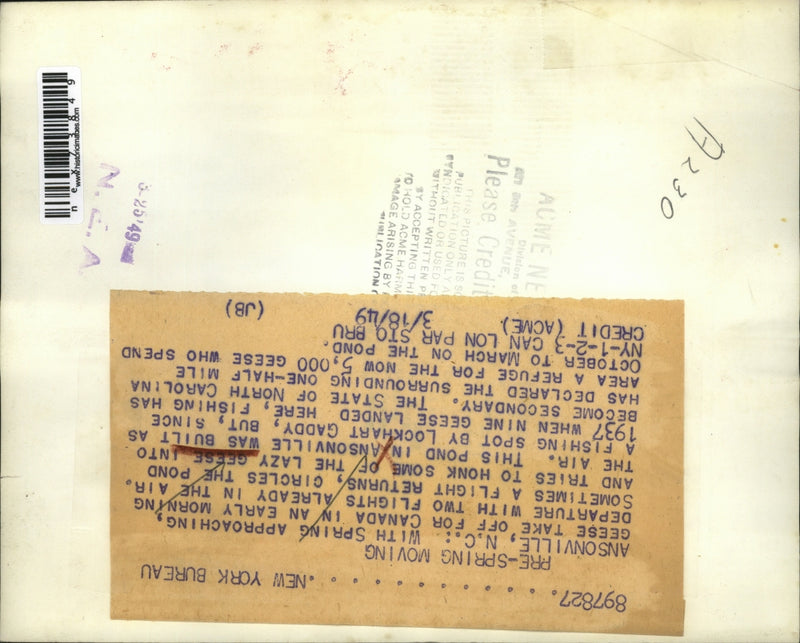 897827 . . . . . . . . . . . . . . NEW YORK BUREAU
PRE-SPRING MOVING
ANSONVILLE, N.C.: WITH SPRING APPROACHING,
GEESE TAKE OFF FOR CANADA IN AN EARLY MORNING
DEPARTURE WITH TWO FLIGHTS ALREADY IN THE AIR.
SOMETIMES A FLIGHT RETURNS, CIRCLES THE POND
AND TRIES TO HONK SOME OF THE LAZY GEESE INTO
THE AIR. THIS POND IN ANSONVILLE WAS BUILT AS
A FISHING SPOT BY LOCKHART GADDY, BUT, SINCE
1937 WHEN NINE GEESE LANDED HERE, FISHING HAS
BECOME SECONDARY. THE STATE OF NORTH CAROLINA
HAS DECLARED THE SURROUNDING ONE-HALF MILE
AREA A REFUGE FOR THE NOW 5,000 GEESE WHO SPEND
OCTOBER TO MARCH ON THE POND.
NY-1-2-3 CAN LON PAR STO BRU
CREDIT (ACME) 3/18/49 (JB)
A230
N.E.A
nex73849
www.historicimages.com
ACME NE
Division of
AVENUE,
Please Credit
THIS PICTURE IS
PUBLICATION ONLY
SYNDICATED OR USED
WITHOUT WRITTEN
BY ACCEPTING THI
TO HOLD ACME HARM
AMAGE ARISING BY
PUBLICATION